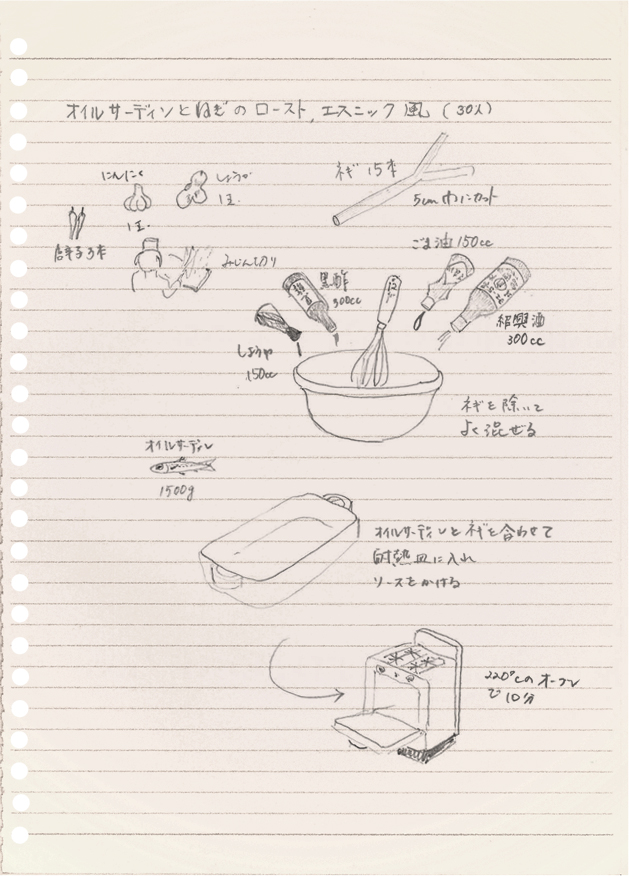 オイルサーディンとねぎのロースト, エスニック風 (30人)
にんにく
1玉.
しょうが
1玉.
唐辛子3本
みじん切り
ネギ 15本
5cm巾にカット
ごま油 150cc
黒酢
300cc
しょうゆ
150cc
紹興油
300cc
ネギを除いて
よく混ぜる
オイルサーディン
1500g
オイルサーディンとネギを合わせて
耐熱皿に入れ
ソースをかける
220℃のオーブン
で10分